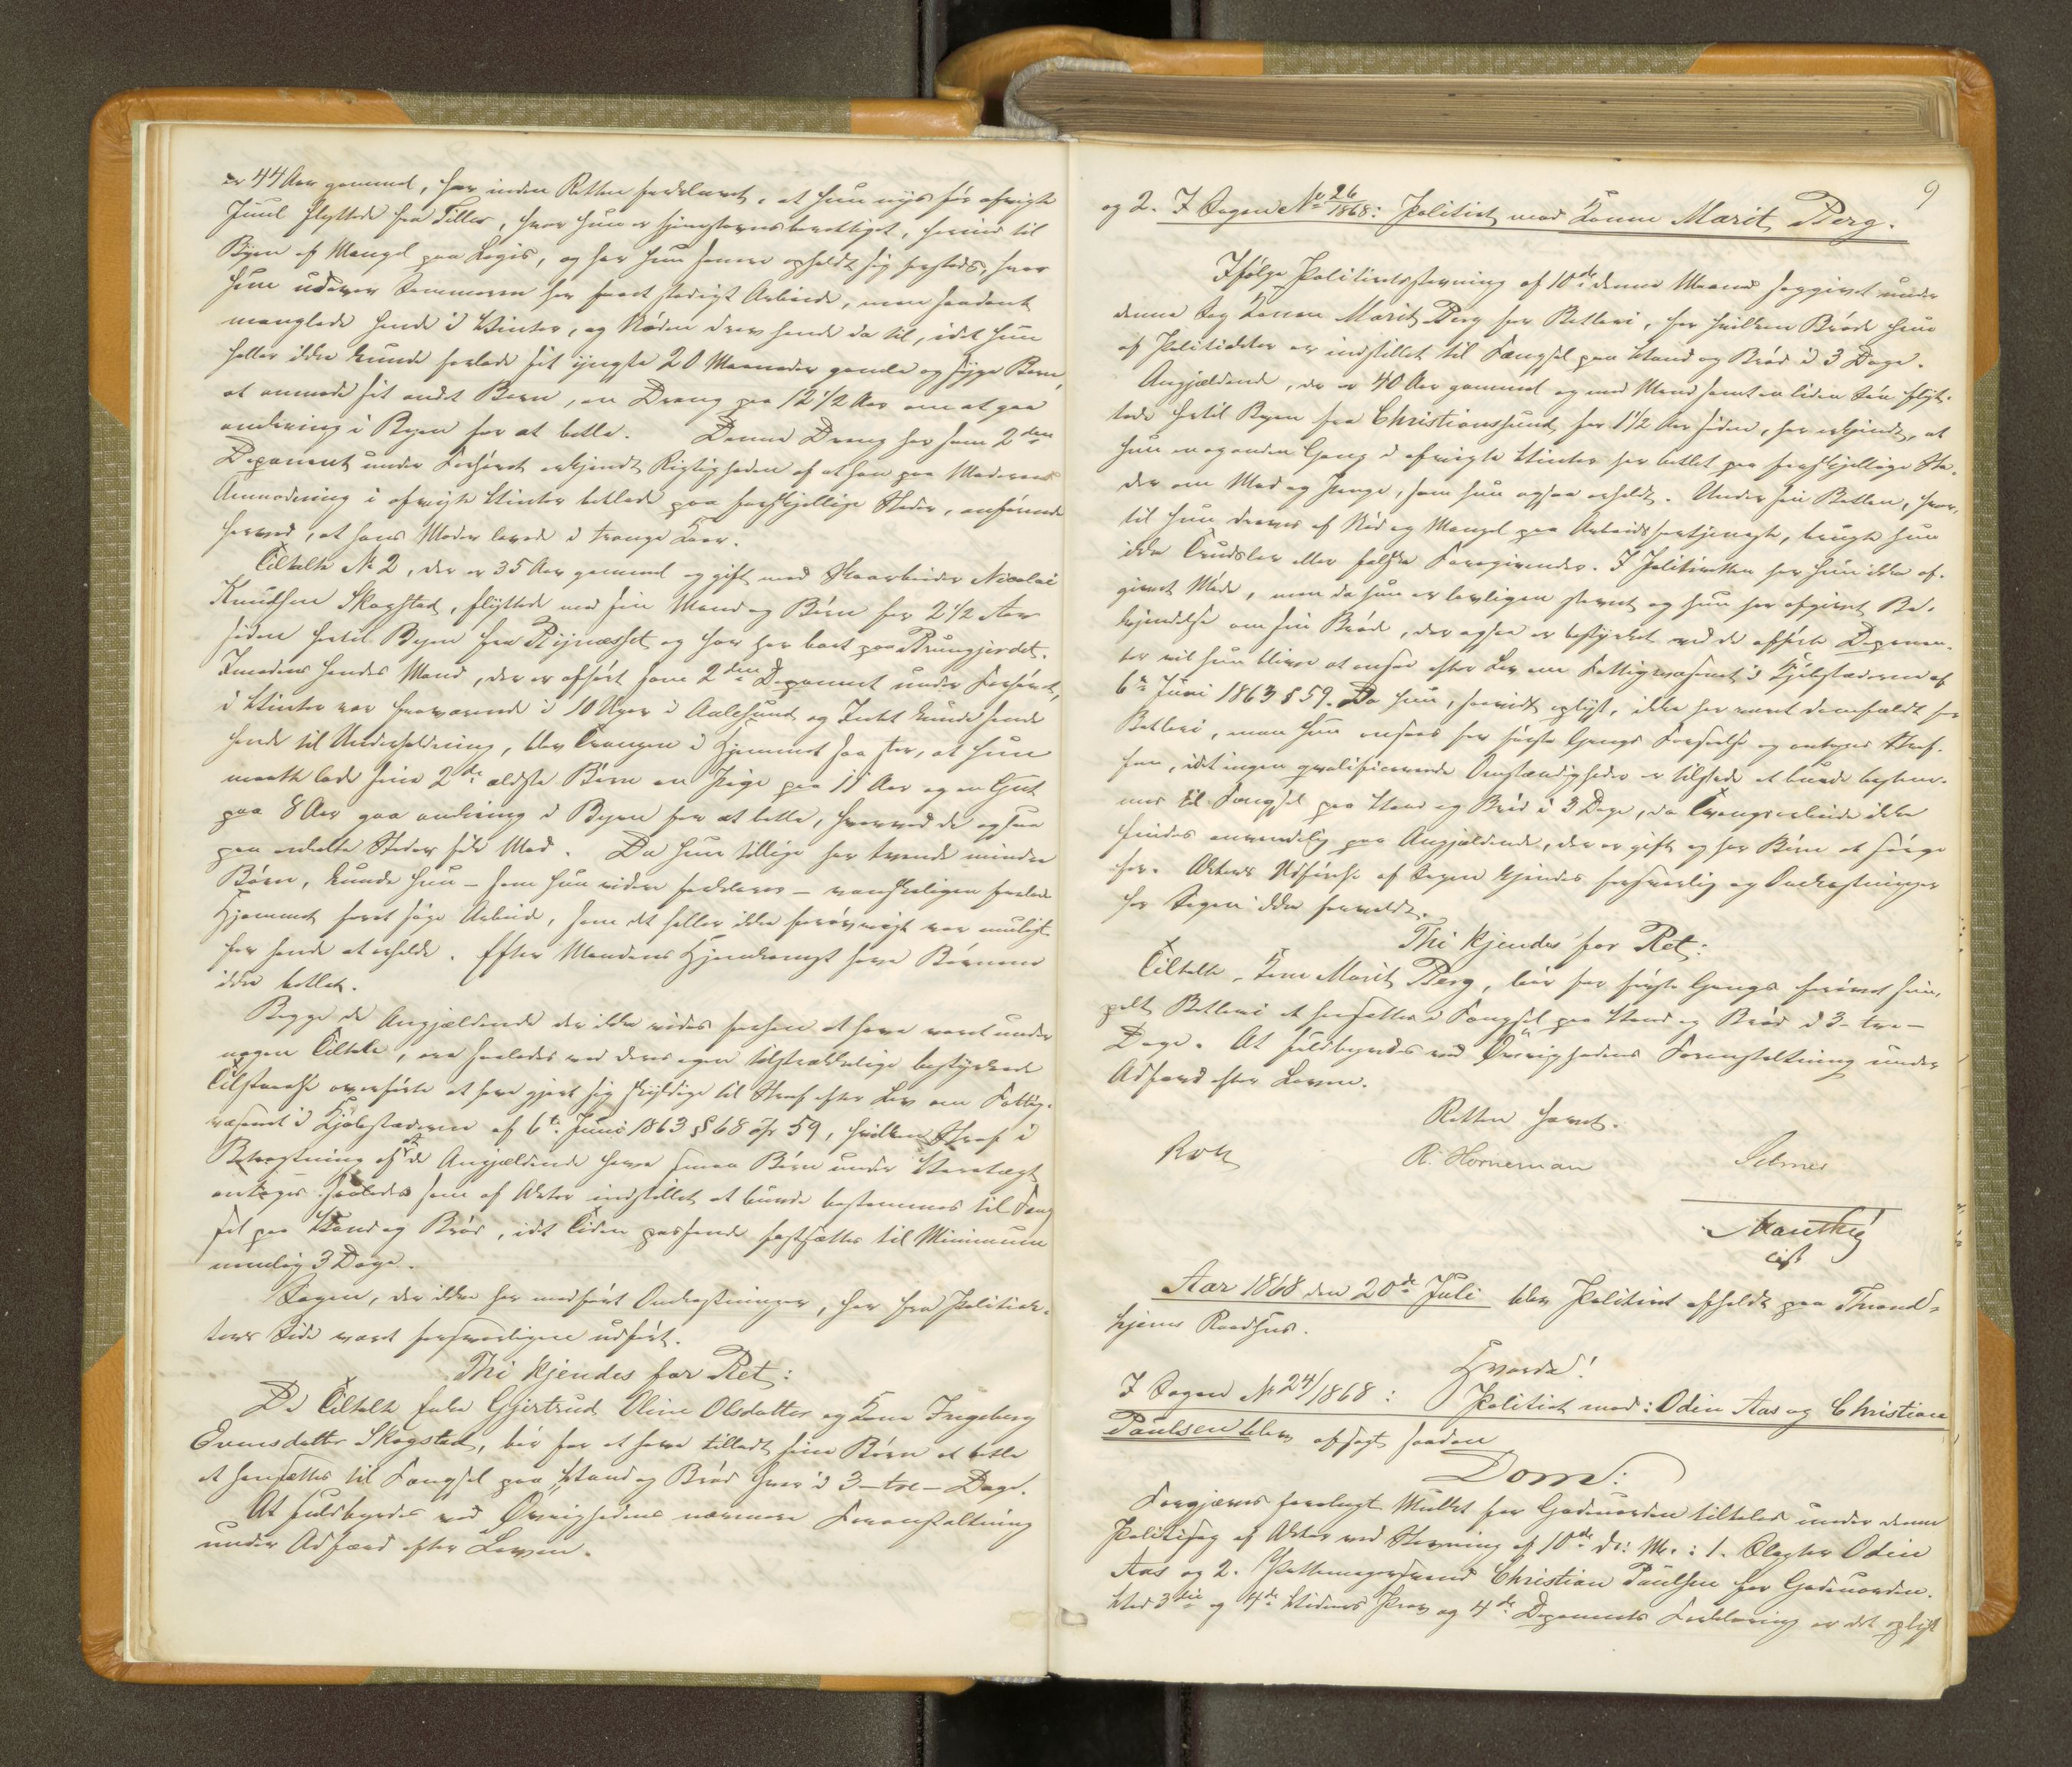 er 44 Aar gammel, har inden Retten forklaret, at hun nys før afvigte
Juul flyttede fra Tiller, hvor hun er hjemstavnsberettiget, herind til
Byen af Mangel paa Logis, og har hun senere opholdt sig hersteds, hvor
hun udover Sommeren har havt stadigt Arbeide, men saadant
manglede hende i Vinter, og Nøden drev hende da til, idet hun
heller ikke kunde forlade sit yngste 20 Maaneder gamle og syge Barn,
at anmode sit andet Barn, en Dreng paa 12 1/2 Aar om at gaa
omkring i Byen for at betle. Denne Dreng har som 2den
Deponent under Forhøret erkjendt Rigtigheden af at han paa Moderens
Anmodning i afvigte Vinter betlede paa forskjellige Steder, anførende
herved, at hans Moder levede i trange Kaar.
Tiltalte No 2, der er 35 Aar gammel og gift med Skoarbeider Nicolai
Knudsen Skogstad, flyttede med sin Mand og Børn for 2 1/2 Aar
siden hertil Byen fra Byneset og har her boet paa Brungjerdet.
Imedens hendes Mand, der er afhørt som 2den Deponent under Forhøret,
i Vinter var fraværende i 10 Uger i Aalesund og Intet kunde sende
hende til Underholdning, blev Trangen i Hjemmet saa stor, at hun
maatte lade sine 2de ældste Børn en Pige paa 11 Aar og en Gut
paa 8 Aar gaa omkring i Byen for at betle, hvorved de ogsaa
paa enkelte Steder fik Mad. Da hun tillige har tvende mindre
Børn, kunde hun – som hun videre forklarer – vanskeligen forlade
Hjemmet foret søge Arbeide, som det heller ikke forøvrigt var muligt
for hende at erholde. Efter Mandens Hjemkomst have Børnene
ikke betlet.
Begge de Angjældende der ikke vides forhen at have været under
nogen Tiltale, ere saaledes ved deres egen tilstrækkelige bestyrkede
Tilstaaelse overførte at have gjort sig skyldige til Straf efter Lov om Fattig-
væsenet i Kjøbstæderne af 6te Juni 1863 § 68 cfr 59, hvilken Straf i
Betragtning af at de Angjældende have smaa Børn under Varetægt
antages saaledes som af Aktor indstillet at burde bestemmes til Fæng
sel paa Vand og Brød, idet Tiden passende fastsættes til Minimum
nemlig 3 Dage.
Sagen, der ikke har medført Omkostninger, har fra Politiak-
tors Side været forsvarligen udført.
Thi kjendes for Ret:
De Tiltalte Enke Gjertrud Oline Olsdatter og Kone Ingeborg
Evensdatter Skogstad, bør for at have tilladt sine Børn at betle
at hensættes til Fængsel paa Vand og Brød hver i 3 – tre – Dage.
At fuldbyrdes ved Øvrighedens nærmere Foranstaltning
under Adfærd efter Loven.
9
og 2. I Sagen No 26/1868: Politiet mod Konen Marit Berg.
Ifølge Politiretsstevning af 10de denne Maaned sagsøges under
denne Sag Konen Marit Berg for Betleri, for hvilken Brøde hun
af Politiaktor er indstillet til Fængsel paa Vand og Brød i 3 Dage.
Angjældende, der er 40 Aar gammel og med Mand samt en liden Søn flyt-
tede hertil Byen fra Christianssund for 1 1/2 Aar siden, har erkjendt, at
hun en og anden Gang i afvigte Vinter har betlet paa forskjellige Ste-
der om Mad og Penge, som hun ogsaa erholdt. Under sin Betlen, hvor-
til hun dreves af Nød og Mangel paa Arbeidsfortjeneste, brugte hun
ikke Trudsler eller falske Foregivender. I Politiretten har hun ikke af-
givet Møde, men da hun er lovligen stevnt og hun har afgivet Be-
kjendelse om sin Brøde, der ogsaa er bestyrket ved de afhørte Deponen-
ter vil hun blive at ansee efter Lov om Fattigvæsenet i Kjøbstæderne af
6te Juni 1863 § 59. Da hun, saavidt oplyst, ikke har været domfældt for
Betleri, maa hun ansees for første Gangs Forseelse og antages Straf-
fen, idet ingen qvalificerende Omstændigheder er tilstede at burde bestem-
mes til Fængsel paa Vand og Brød i 3 Dage, da Tvangsarbeide ikke
findes anvendelig paa Angjældende, der er gift og har Børn at sørge
for. Aktors Udførelse af Sagen kjendes forsvarlig og Omkostninger
har Sagen ikke foraarsaget.
Thi kjendes for Ret:
Tiltalte, Kone Marit Berg, bør for første Gangs forøvet sim-
pelt Betleri at hensættes i Fængsel paa Vand og Brød i 3 – tre –
Dage. At fuldbyrdes ved Øvrighedens Foranstaltning under
Adfærd efter Loven.
Retten hævet.
R. Horneman
Selmer
Aar 1868 den 20de Juli blev Politiret afholdt paa Thrond-
hjems Raadhus.
Hvorda!
I Sagen No 24/1868: Politiet mod: Odin Aas og Christian
Paulsen blev afsagt saadan
Dom:
Forgjæves forelagt Mulkt for Gadeuorden tiltales under denne
Politisag af Aktor ved Stevning af 10de ds: Mr.: 1. Slagter Odin
Aas og 2. Pottemagersvend Christian Paulsen for Gadeuorden.
Ved 3die og 4de Vidners Prov og 4de Deponents Forklaring er det oplyst